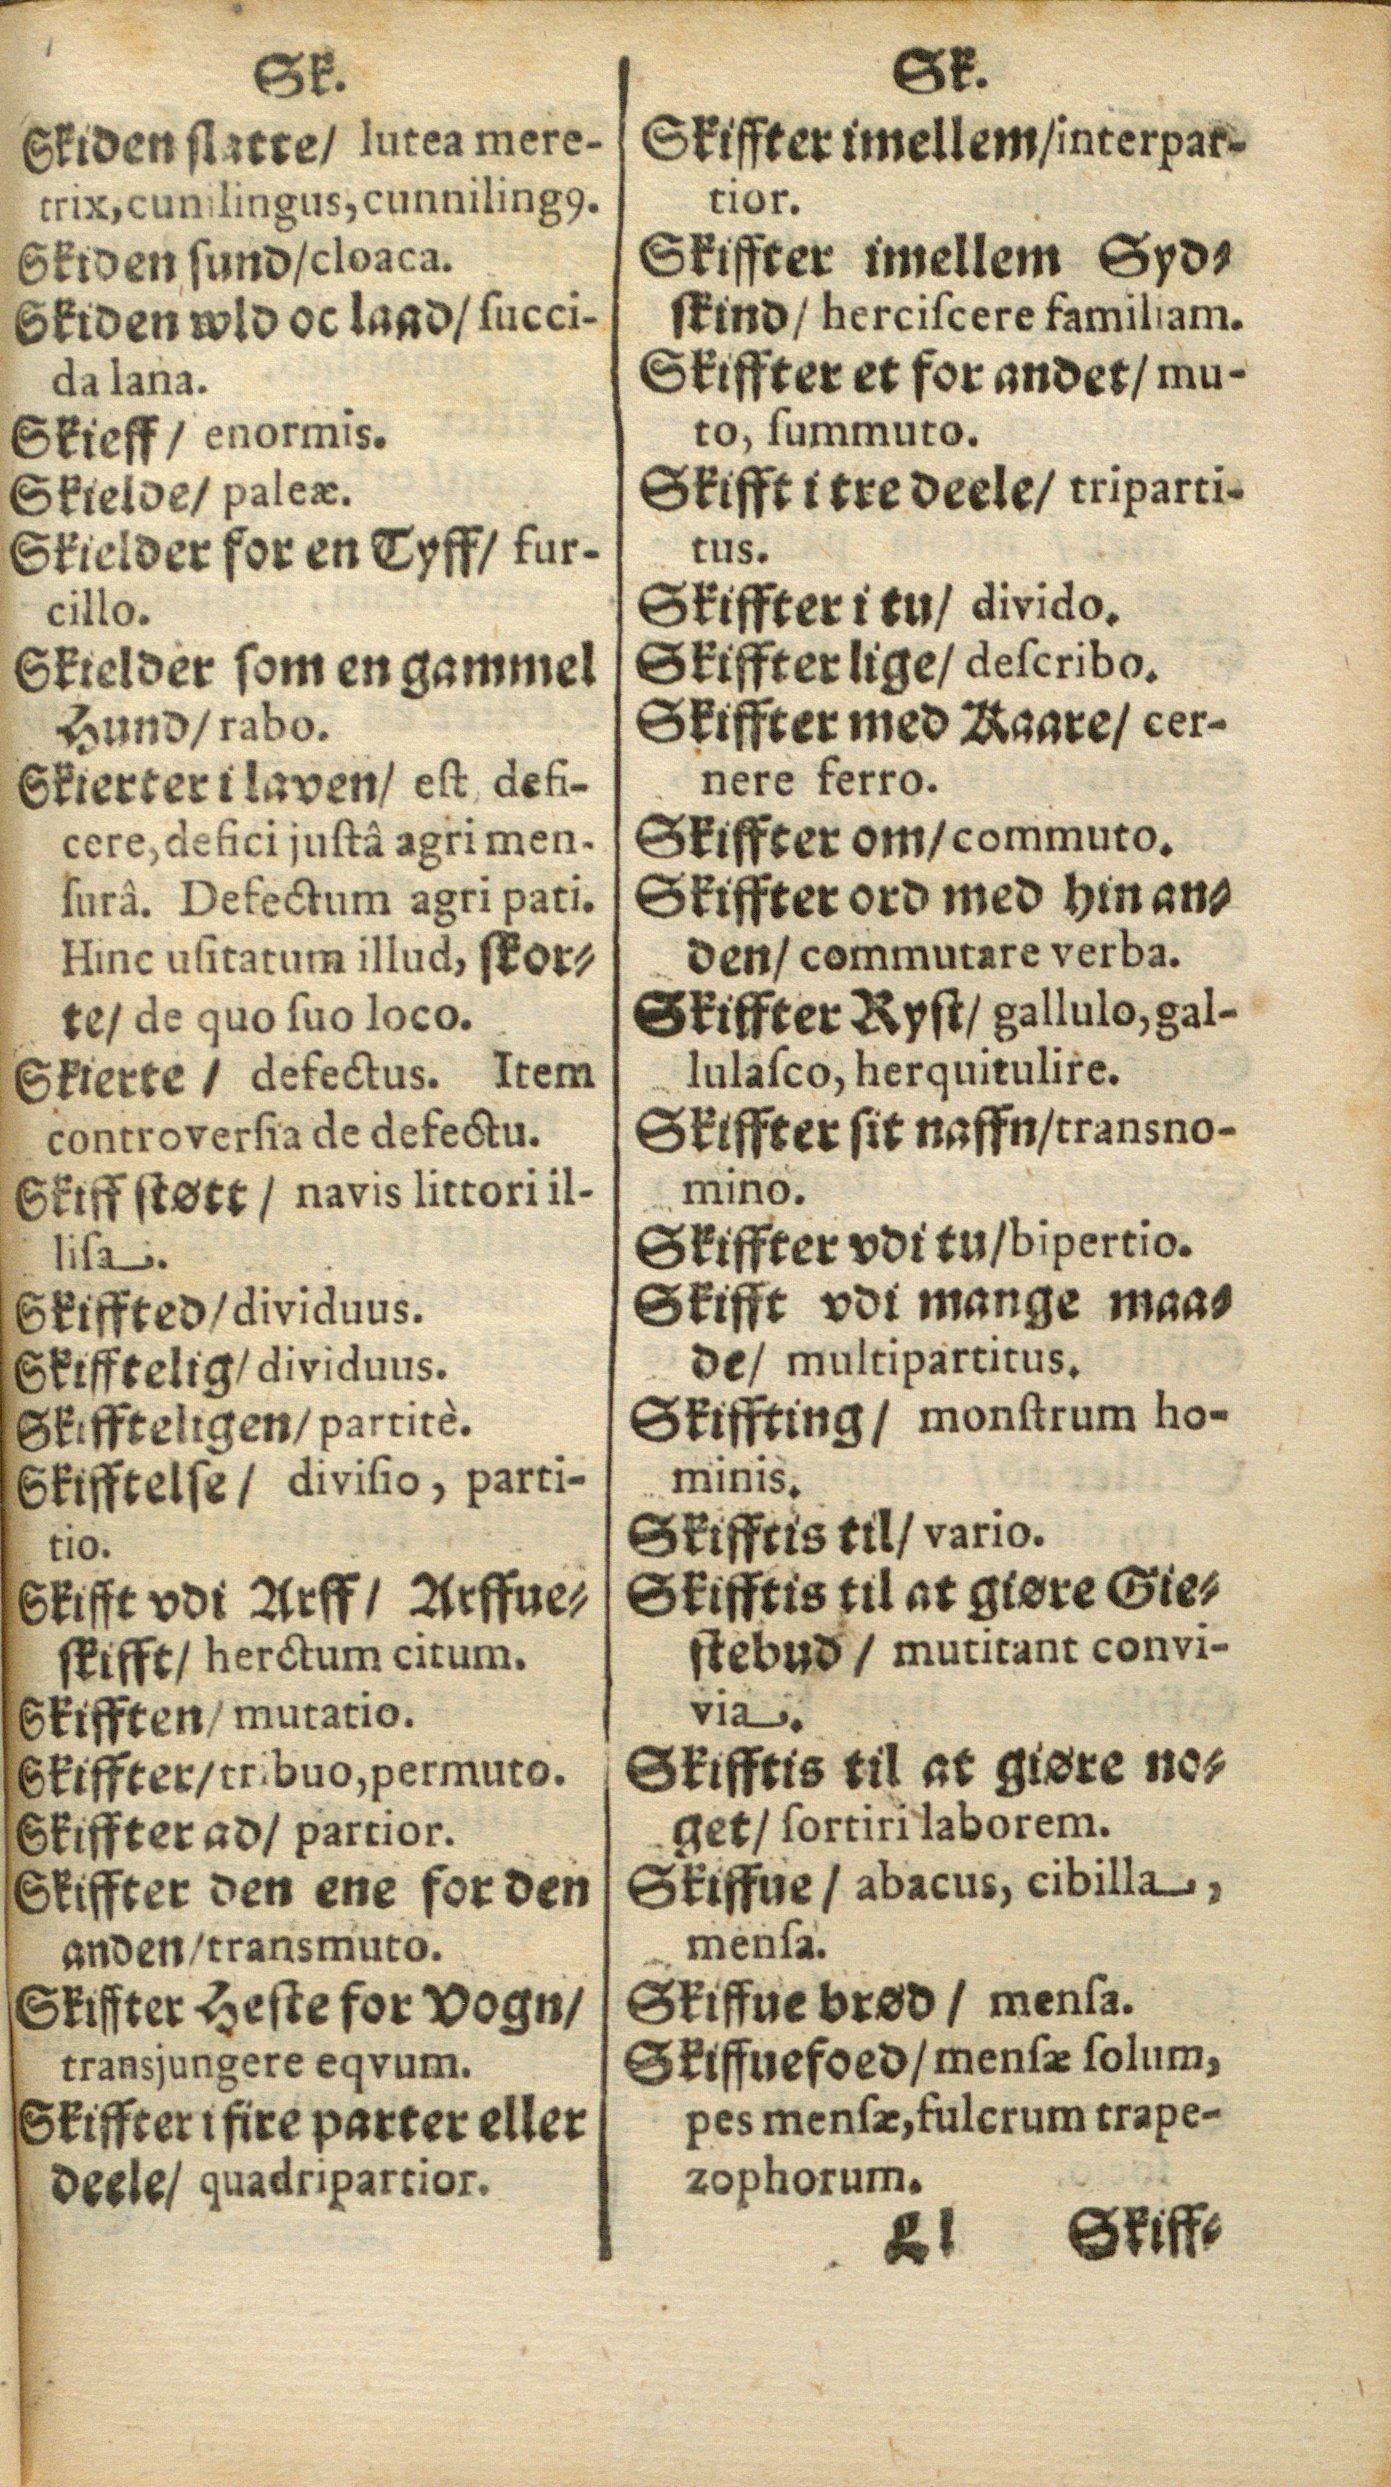 Sk.
Skiden slatte/ lutea mere-
trix, cunilingus, cunniling9.
Skiden sund/cloaca.
Skiden wld oc laad/ ſucci-
da lana.
Skieff / enormis.
Skielde/ paleæ.
Skielder for en Tyff/ fur-
cillo.
Skielder ſom en gammel
Hund/ rabo.
Skierter i laven/ eſt defi-
cere, defici juſtâ agri men-
ſurâ. Defectum agri pati.
Hinc uſitatum illud, ſkor-
te/ de quo ſuo loco.
Skierte / defectus. Item
controverſia de defectu.
Skiff ſtøtt / navis littori il-
liſa.
Skiffted/ dividuus.
Skifftelig/ dividuus.
Skiffteligen/ partitè.
Skifftelſe / diviſio, parti-
tio.
Skifft vdi Arff / Arffue-
ſkifft/ herctum citum.
Skifften/ mutatio.
Skiffter/ tribuo, permuto.
Skiffter ad/ partior.
Skiffter den ene for den
anden/transmuto.
Skiffter Heſte for Vogn/
transjungere eqvum.
Skiffter i fire parter eller
deele/ quadripartior.
Sk.
Skiffter imellem/interpar-
tior.
Skiffter imellem Syd-
ſkind/ herciſcere familiam.
Skiffter et for andet/ mu-
to, ſummuto.
Skifft i tre deele/ triparti-
tus.
Skiffter i tu/ divido.
Skiffter lige/ deſcribo.
Skiffter med Kaare/ cer-
nere ferro.
Skiffter om/ commuto.
Skiffter ord med hin an-
den/ commutare verba.
Skiffter Ryſt/ gallulo, gal-
lulaſco, herquitulire.
Skiffter ſit naffn/transno-
mino.
Skiffter vdi tu/bipertio.
Skifft vdi mange maa-
de/ multipartitus.
Skiffting/ monſtrum ho-
minis.
Skifftis til/ vario.
Skifftis til at giøre Gie-
ſtebud / mutitant convi-
via.
Skifftis til at giøre no-
get/ ſortiri laborem.
Skiffue / abacus, cibilla,
menſa.
Skiffue brød / menſa.
Skiffuefoed/ menſæ ſolum,
pes menſæ, fulcrum trape-
zophorum.
Ll Skiff-